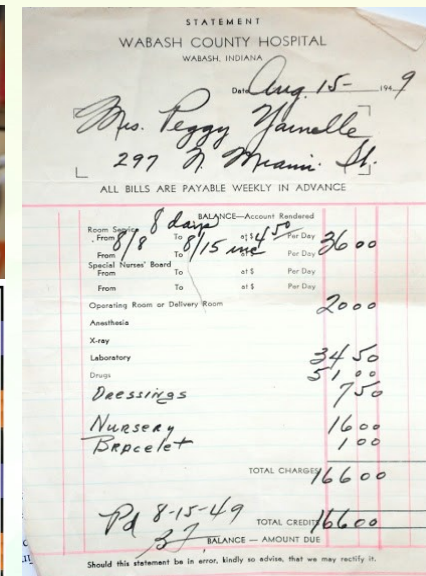 STATEMENT
WABASH COUNTY HOSPITAL
WABASH, INDIANA
Date Aug. 15- 1949
Mrs. Peggy Yarnelle
297 N. Miami St.
ALL BILLS ARE PAYABLE WEEKLY IN ADVANCE
BALANCE—Account Rendered
Room Service 8 days
From 8/8 To 8/15 inc at $ 4 50 Per Day 36 00
From To at $ Per Day
Special Nurses' Board
From To at $ Per Day
From To at $ Per Day
Operating Room or Delivery Room 20 00
Anesthesia
X-ray
Laboratory 34 50
Drugs 51 00
Dressings 7 50
Nursery 16 00
Bracelet 1 00
TOTAL CHARGES 166 00
Pd 8-15-49
TOTAL CREDIT 166 00
BALANCE — AMOUNT DUE
Should this statement be in error, kindly so advise, that we may rectify it.